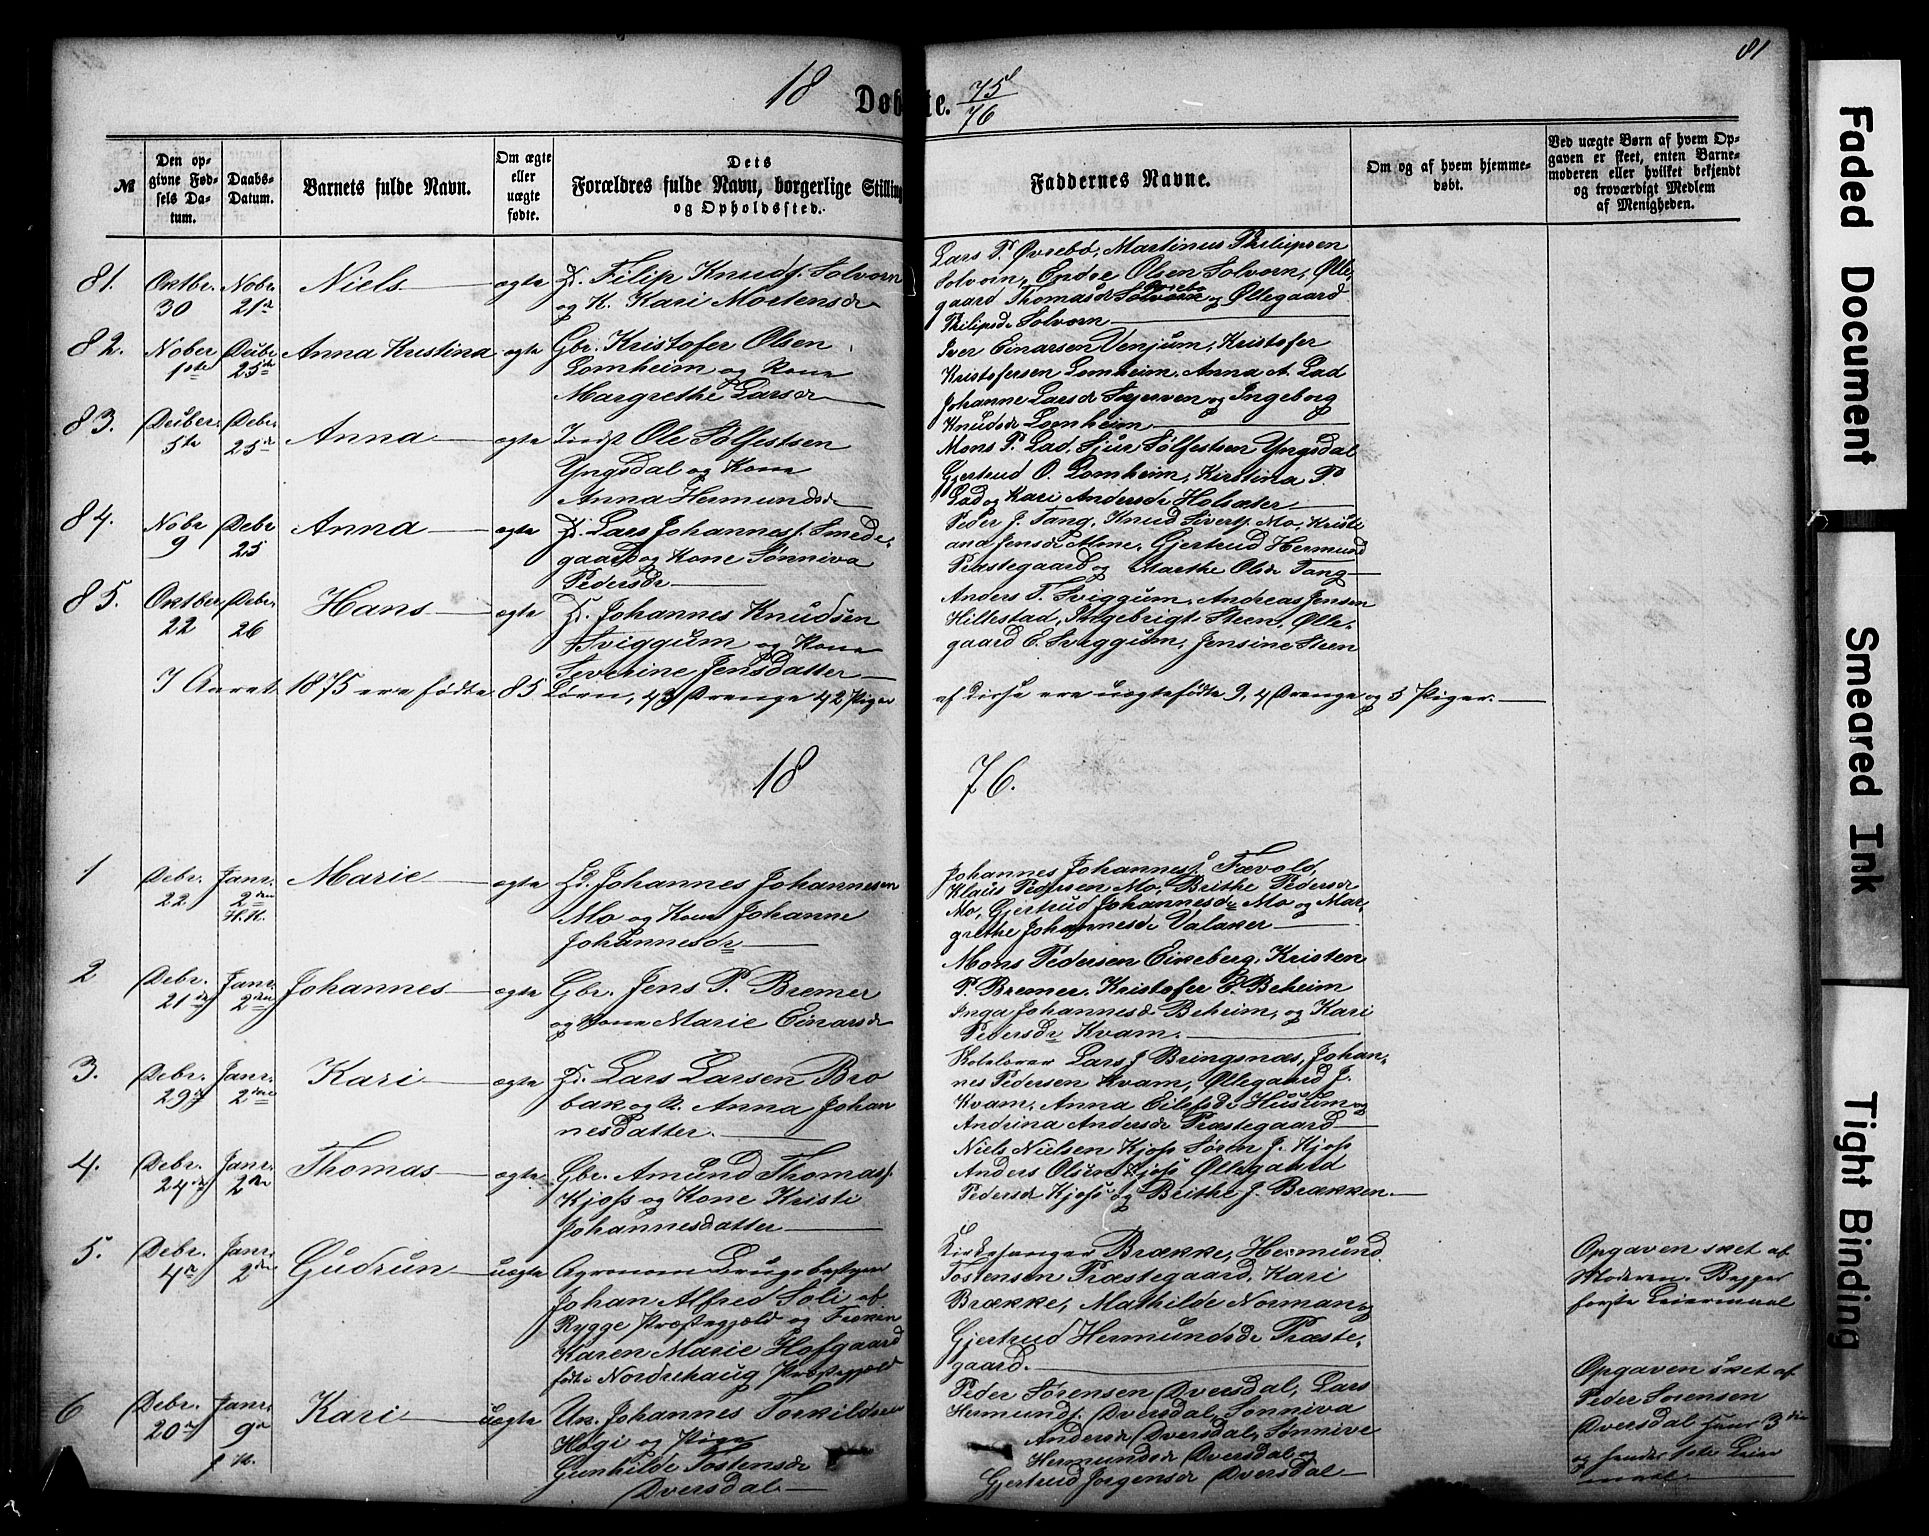 81
18 Døbte. 75/76
№
Den opgivne Fødsels Datum.
Daabs-Datum.
Barnets fulde Navn.
Om ægte eller uægte fødte.
Dets Forældres fulde Navn, borgerlige Stilling og Opholdssted.
Faddernes Navne.
Om og af hvem hjemmedøbt.
Ved uægte Børn af hvem Opgaven er skeet, enten Barnemoderen eller hvilket bekjendt og troværdigt Medlem af Menigheden.
81. Oktbr. 30 Nobr. 21de Niels ægte
Hd. Filip Knuds. Solvorn
og K. Kari Mortensdr
Lars P. Øvrebø, Martinus Philipsen
Solvorn, Endre Olsen Solvorn, Ølle-
gaard Thomasdr Øvrebø og Øllegaard
Philipsdr Solvorn
82. Nober 1ste Debr 25de Anna Kristina ægte
Gbr. Kristofer Olsen
Lomheim og Kone
Margrethe Larsdr
Iver Einarsen Venjum, Kristofer
Kristofersen Lomheim, Anna A. Lad
Johanne Larsdr Skjerven og Ingeborg
Knudsdr Lomheim
83. Deuber 5te Debr. 25de Anna ægte
Indst Ole Sølfestsen
Yngsdal og Kone
Anna Hermundsdr
Mons P. Lad, Sjur Sølfestsen Yngsdal
Gjertrud O. Lomheim, Kirstina P.
Lad og Kari Andersdr Holsæter
84. Nobr 9 Debr 25 Anna ægte
Hd. Lars Johannes. Smede-
gaard og Kone Sønniva
Pedersdr
Peder J. Tang, Knud Siverts. Mo, Kristi
ana Jensdr Mone, Gjertrud Hermund
Præstegaard og Marthe Olsdr Tang
85. Oktber 22 Debr. 26 Hans ægte
Hd. Johannes Knudsen
Sviggum og Kone
Severine Jensdatter
Anders T. Sviggum, Andreas Jensen
Hillestad, Ingebrigt Steen, Ølle-
gaard E. Sviggum, Jensine Steen
I Aaret 1875 ere fødte 85 Børn, 43 Drenge 42 Piger
af disse ere uægtefødte 9, 4 Drenge og 5 Piger.
18 76.
1 Debr. 22 Janr. 2den H.K. Marie ægte
Hd. Johannes Johannesen
Mo og Kone Johanne
Johannesdr
Johannes Johannes. Fævold,
Klaus Pedersen Mo, Brithe Pedersdr
Mo, Gjertrud Johannesdr Mo og Mar-
grethe Johannesdr Valaker
2 Debr. 21de Janr. 2den Johannes ægte
Gbr. Jens P. Bremer
og Kone Marie Einarsdr
Mons Pedersen Eikeberg, Kristen
P. Bremer, Kristofer E. Beheim
Inga Johannesdr Beheim, og Kari
Pedersdr Kvam.
3. Debr. 29de Janr. 2den Kari ægte
Hd. Lars Larsen Bro
bak og K. Anna Johan
nesdatter.
Skolelærer Lars J. Bringsnæs, Johan-
nes Pedersen Kvam, Øllegaard J.
Kvam, Anna Eilefsdr Husum og
Andrina Andersdr Præstegaard
4. Debr. 24de Janr. 2den Thomas ægte
Gbr. Amund Thomas.
Kjøss og Kone Kristi
Johannesdatter
Niels Nielsen Kjøss Søren J. Kjøss
Anders Olsen Kjøss Øllegaard
Pedersdr Kjøss og Brithe J. Brækken.
5. Debr. 4de Janr. 2den Gudrun uægte
Agronom Brugsbestyrer
Johan Alfred Soli af
Rygge Præstegjæld og Frøken
Karen Marie Hofgaard
født i Nordrehaug Præstegjæld
Kirkesanger Brække, Hermund
Tostensen Præstegaard, Kari
Brække, Mathilde Norman og
Gjertrud Hermundsdr Præste-
gaard.
Opgaven sket af
Moderen. Begges
første Leiermaal
6 Debr. 20de Janr. 9de Kari uægte
Uk. Johannes Torkildsen
Høgi og Pige
Gunhilde Tostensdr
Dversdal
Peder Sørensen Dversdal, Lars
Hermunds. Dversdal, Sønniva
Andersdr Dversdal, Sønnive
Hermundsdr Dversdal og
Gjertrud Jørgensdr Dversdal
Opgaven sket af
Peder Sørensen
Dversdal hans 3die
og hendes 1ste Leier
maal
Faded Document
Smeared Ink
Tight Binding